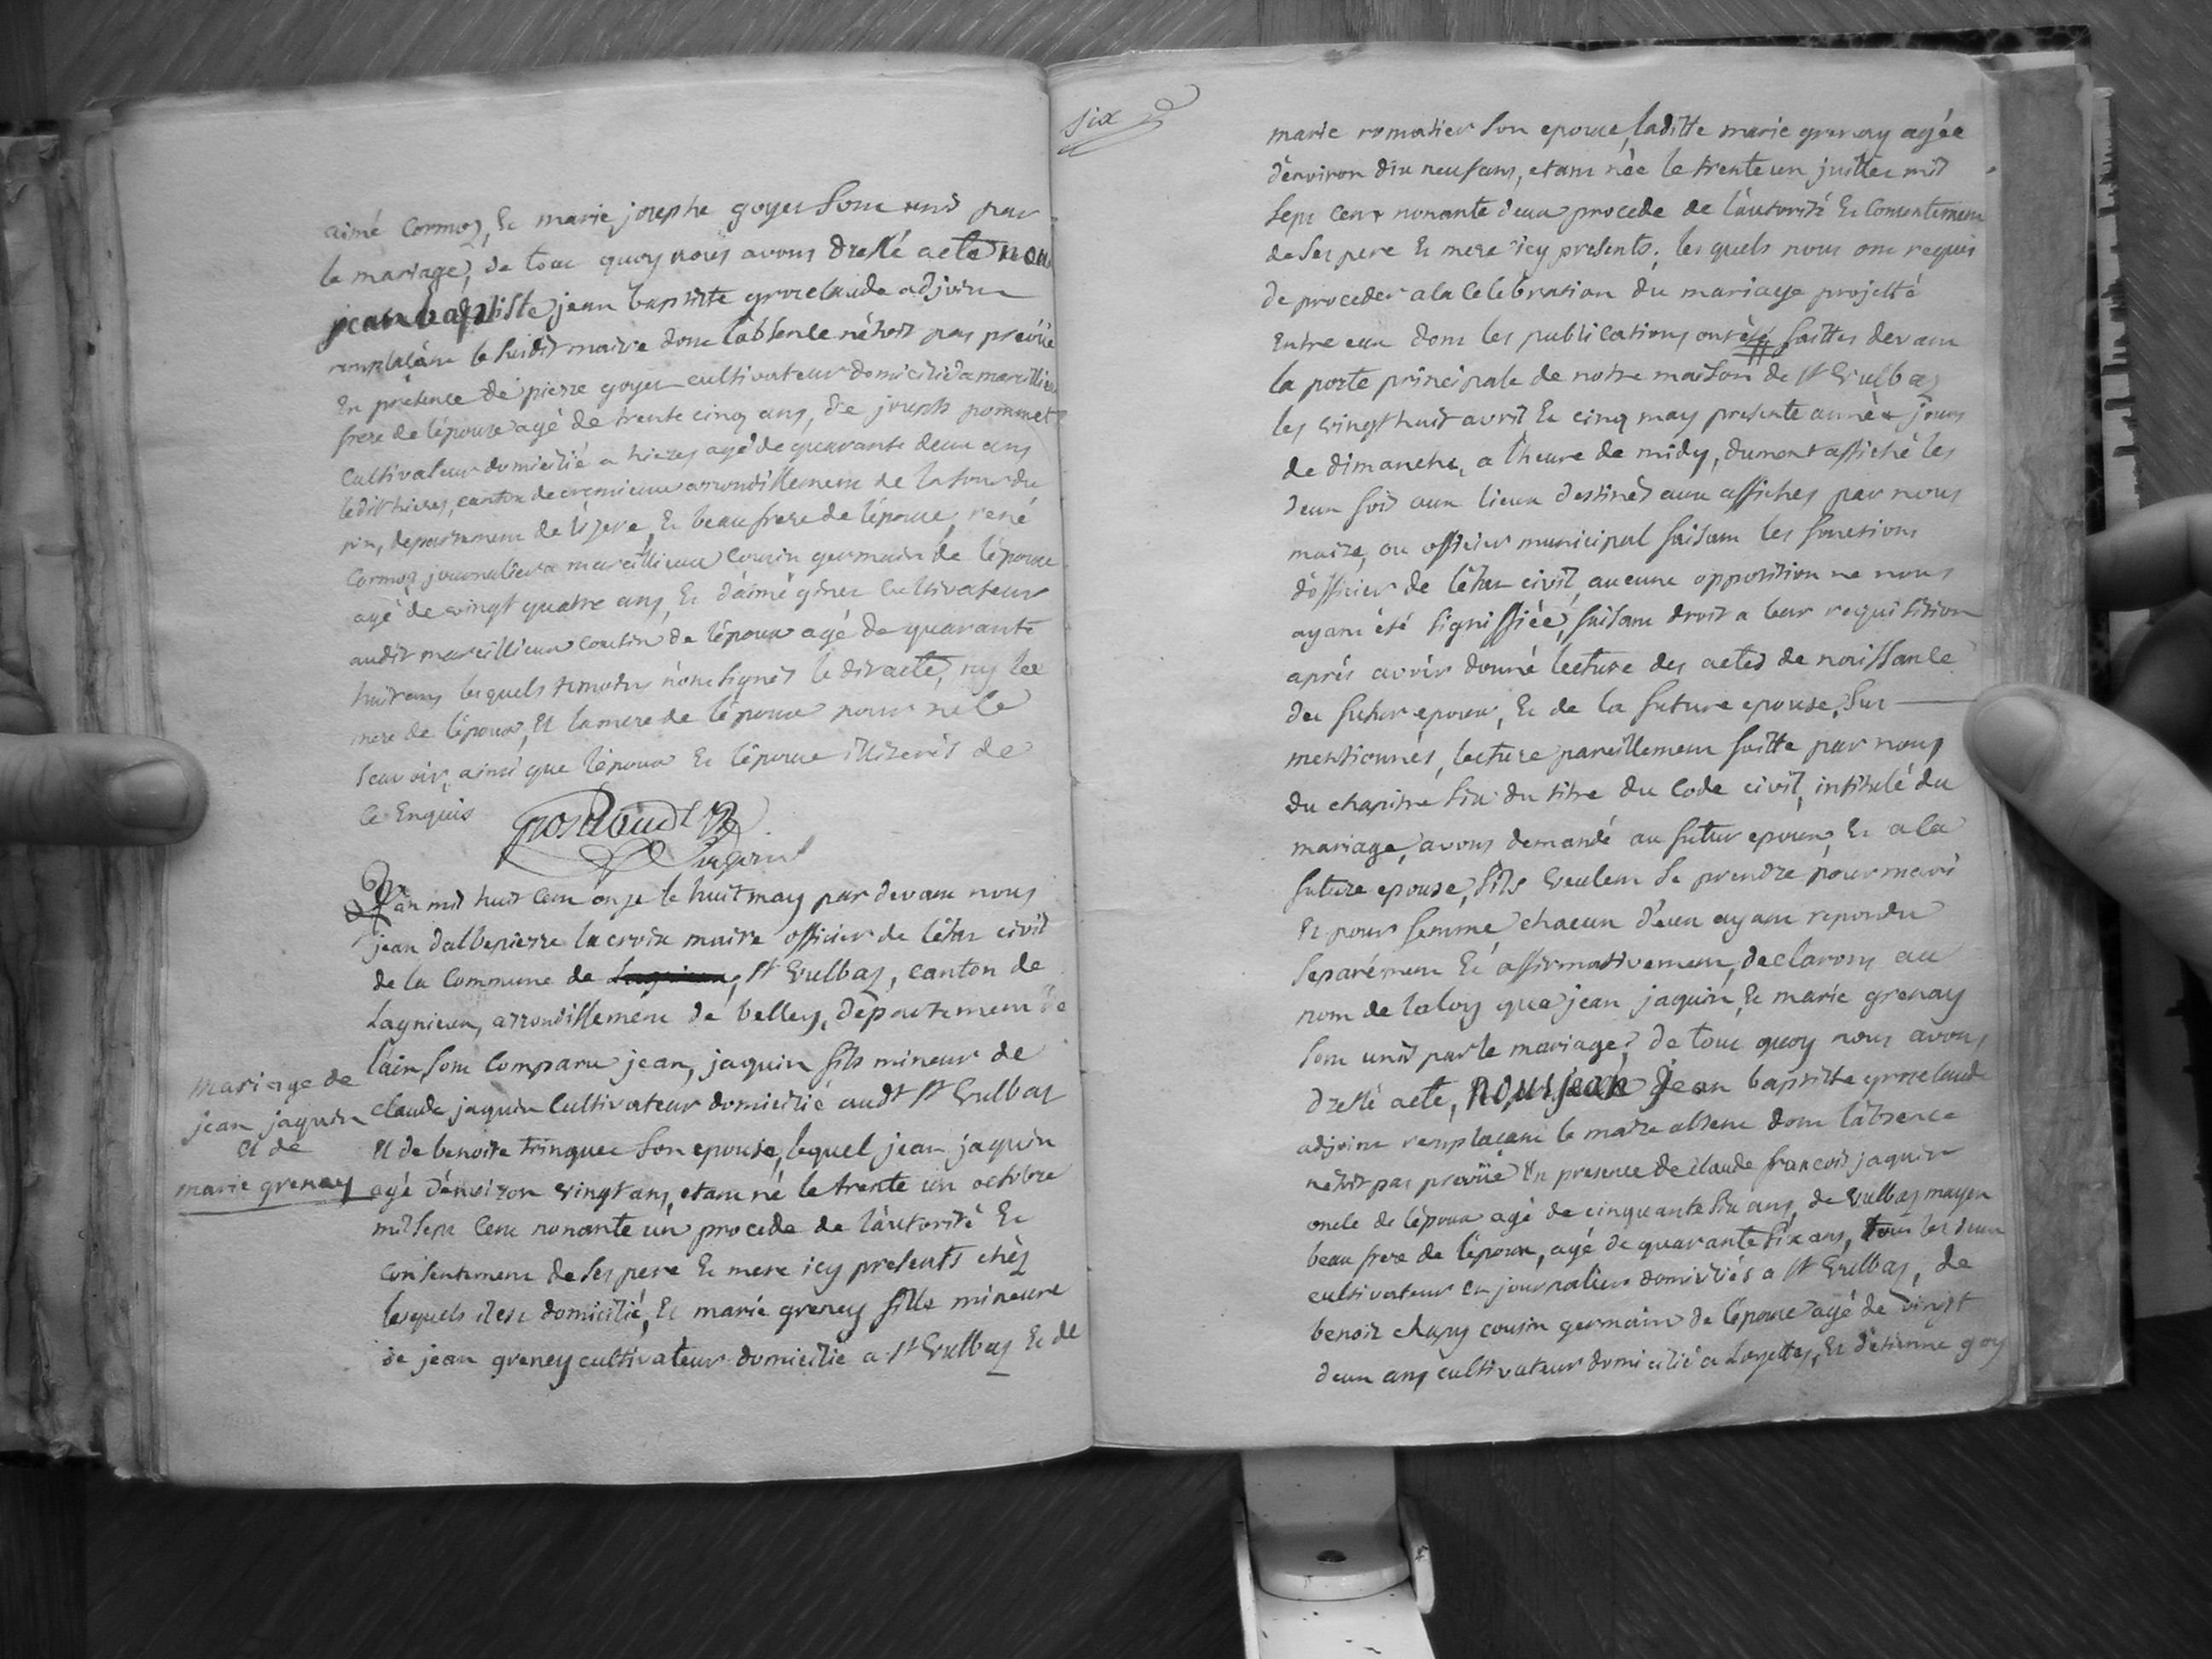 aimé Cormoz, Et marie josephe goyet Sont unis par
le mariage, de tout quoy nous avons dressé acte nou
jean baptiste jean baptiste groselaude adjoint
remplaçant le susdit maire dont l'absence n'étoit pas prévüe
En présence de pierre goyet cultivateur domicilié a marcillieu
frere de l'épouse agé de trente cinq ans, de joseph pommet
Cultivateur domicilié a hieres agé de quarante deux ans
ledit hieres, canton de cremieux arrondissement de latour du
pin, departement de l'isere, Et beau frere de l'épouse, rené
Cormoz journalier a marcillieux Cousin germain de l'époux
agé de vingt quatre ans, Et d'aimé ginet Cultivateur
audit marcillieux cousin de l'époux agé de quarante
huit ans lesquels temoins n'ont signés le dit acte, ny les
mere de l'époux, Et la mere de l'épouse pour ne le
scavoir, ainsi que l'époux Et l'épouse illiterés de
ce Enquis
groselaude
adjoint
L'an mil huit Cent onze le huit may par devant nous
jean dalbepierre lacroix maire officier de l'état civil
de la Commune de St Vulbas, canton de
Lagnieux, arrondissement de belley, departement de
l'ain, Sont Comparu jean, jaquin fils mineur de
Mariage de
jean jaquin
et de
marie grenay
claude jaquin Cultivateur domicilié audt St Vulbas
Et de benoite trinquet Son epouse, lequel jean jaquin
agé d'environ vingt ans, etant né le trente un octobre
mil sept Cent nonante un procede de l'autorité Et
consentement de Ses pere Et mere icy presents chèz
lesquels il est domicilié, Et marie greney fille mineure
de jean greney cultivateur domicilié a St Vulbas Et de
six
marie romatier Son epouse, laditte marie grenay agée
d'environ dix neuf ans, etant née le trente un juillet mil
Sept Cent nonante deux procede de l'autorité Et Consentement
de Ses pere Et mere icy presents, lesquels nous ont requis
de proceder a la Celebration du mariage projetté
Entre eux dont les publications ont été faittes devant
la porte principale de notre maison de St Vulbas
les vingt huit avril Et cinq may presente année jours
de dimanche, a l'heure de midy, dument affiché les
deux fois aux lieux destinés aux affiches par nous
maire, ou officier municipal faisant les fonctions
d'officier de l'état civil, aucune opposition ne nous
ayant été Signiffiée, faisant droit a leur requisition
après avoir donné lecture des actes de naissance
du futur epoux, Et de la future epouse, Sus
mentionnés, lecture pareillement faitte par nous
du chapitre Six du titre du Code civil, intitulé du
mariage, avons demandé au futur epoux, Et a la
future epouse, S'ils veulent Se prendre pour mari
Et pour femme chacun d'eux ayant repondu
Separément Et affirmativement, declarons au
nom de la loy que jean jaquin, Et marie grenay
Sont unis par le mariage, de tout quoy nous avons
dressé acte, nous jean jean baptiste groselaude
adjoint remplaçant le maire absent dont l'absence
n'étoit pas prévüe En presence de claude françois jaquin
oncle de l'époux agé de cinquante Six ans, de Vulbas mayen
beau frere de l'époux, agé de quarante Six ans, tous les deux
cultivateur et journalier domiciliés a St Vulbas, de
benoit chapuy cousin germain de l'épouse agé de vingt
deux ans cultivateur domicilié a Loyettes, Et d'etienne goy